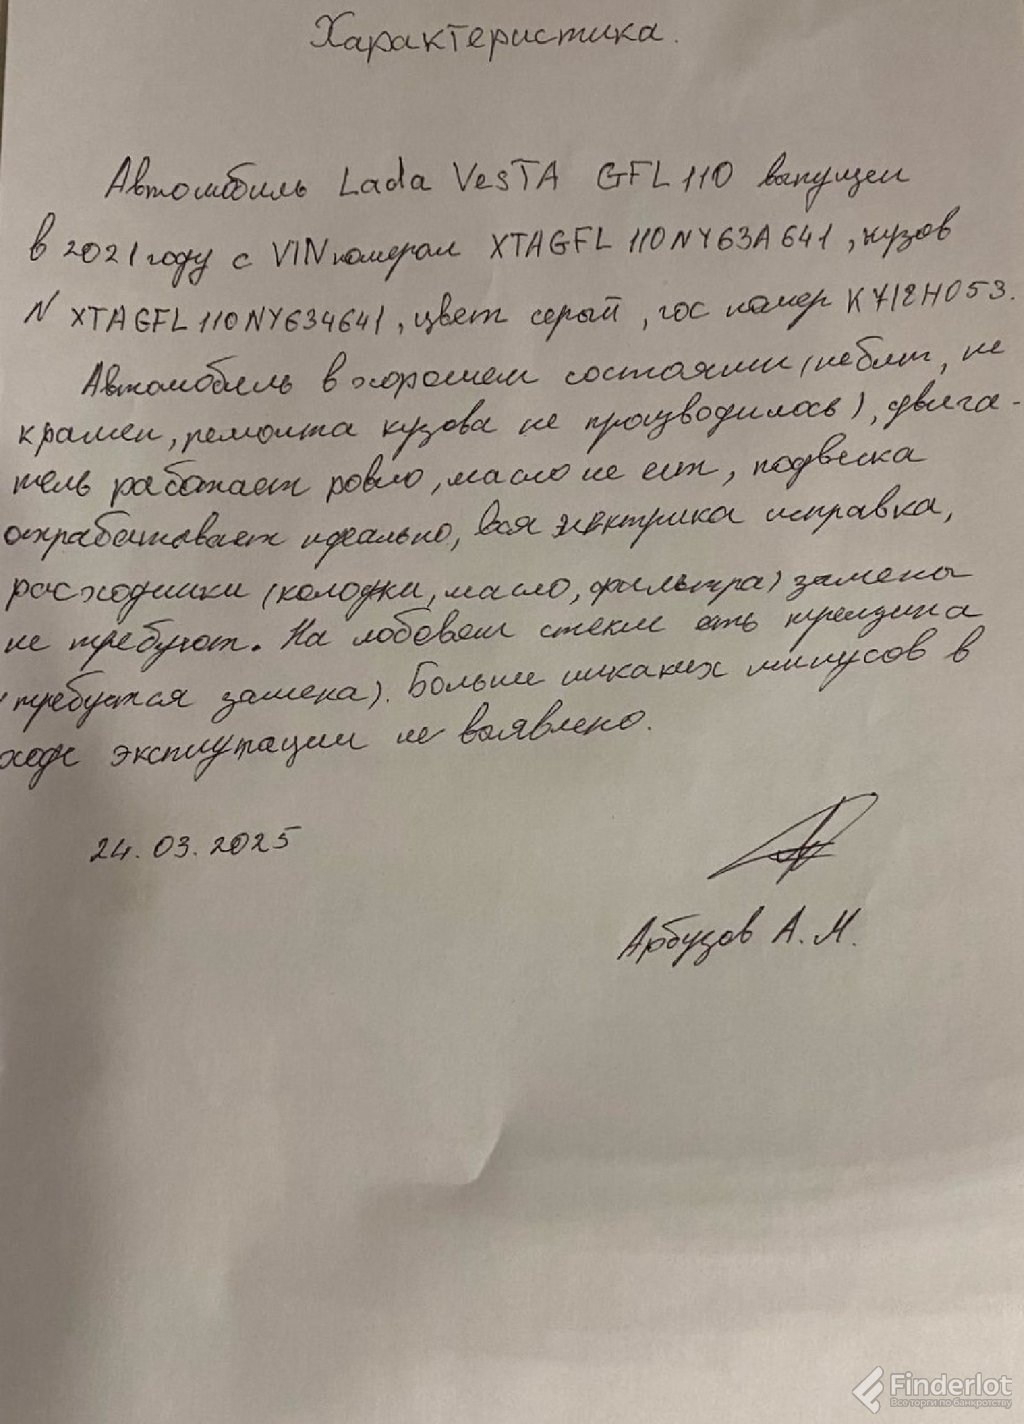 Характеристика.
Автомобиль Lada VesTA GFL 110 выпущен
в 2021 году с VIN номером XTAGFL 110NY63A641, кузов
N XTAGFL 110NY634641, цвет серый, гос номер К712Н053.
Автомобиль в хорошем состоянии (не бит, не
крашен, ремонта кузова не производилось), двига-
тель работает ровно, масло не ест, подвеска
отрабатывает идеально, вся электрика исправна,
расходники (колодки, масло, фильтра) замены
не требуют. На лобовом стекле есть трещина
(требуется замена). Больше никаких минусов в
ходе эксплутации не выявлено.
24.03.2025
Арбузов А. М.
Finderlot
Все торги по банкротству